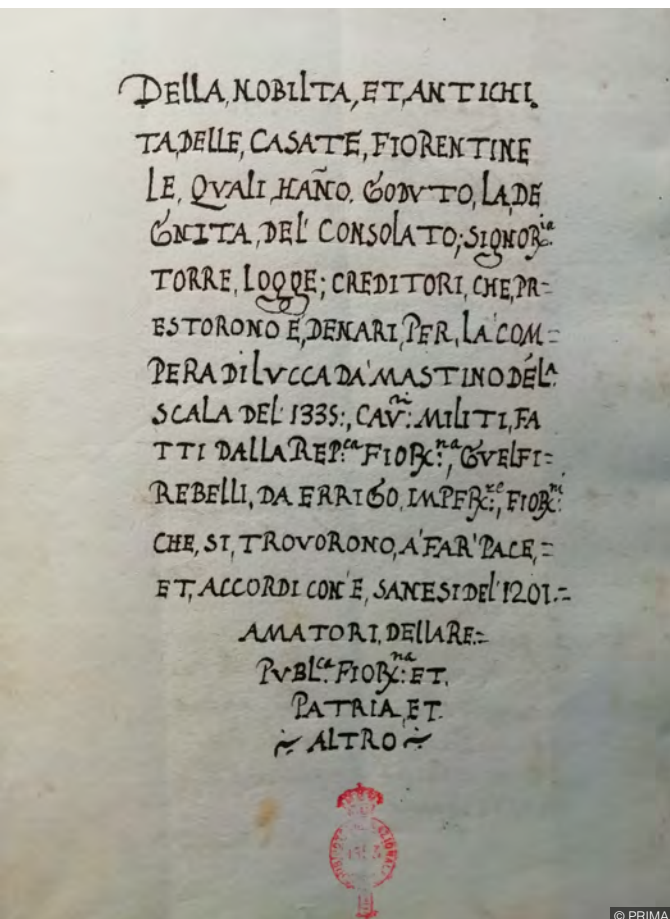 DELLA, NOBILTA, ET, ANTICHI,
TA, DELLE, CASATE, FIORENTINE
LE, QVALI, HAÑO, GODVTO, LA, DE
GNITA, DEL' CONSOLATO; SIGNOR:ia
TORRE, LOGGE; CREDITORI, CHE, PR=
ESTORONO E, DENARI, PER, LA' COM=
PERA DI LVCCA DA' MASTINO DÉLA:
SCALA DEL' 1335:, CAV:ri MILITI, FA
TTI DALLA REP:ca FIOR:na, GVELFI=
REBELLI, DA ERRIGO, IMPER:re, FIOR:ni
CHE, SI, TROVORONO, A' FAR' PACE,=
ET, ACCORDI CON' E, SANESI DEL' 1201.=
AMATORI, DELLA RE=
PVBL:ca FIOR:na: ET.
PATRIA, ET.
~ ALTRO ~
© PRIMA